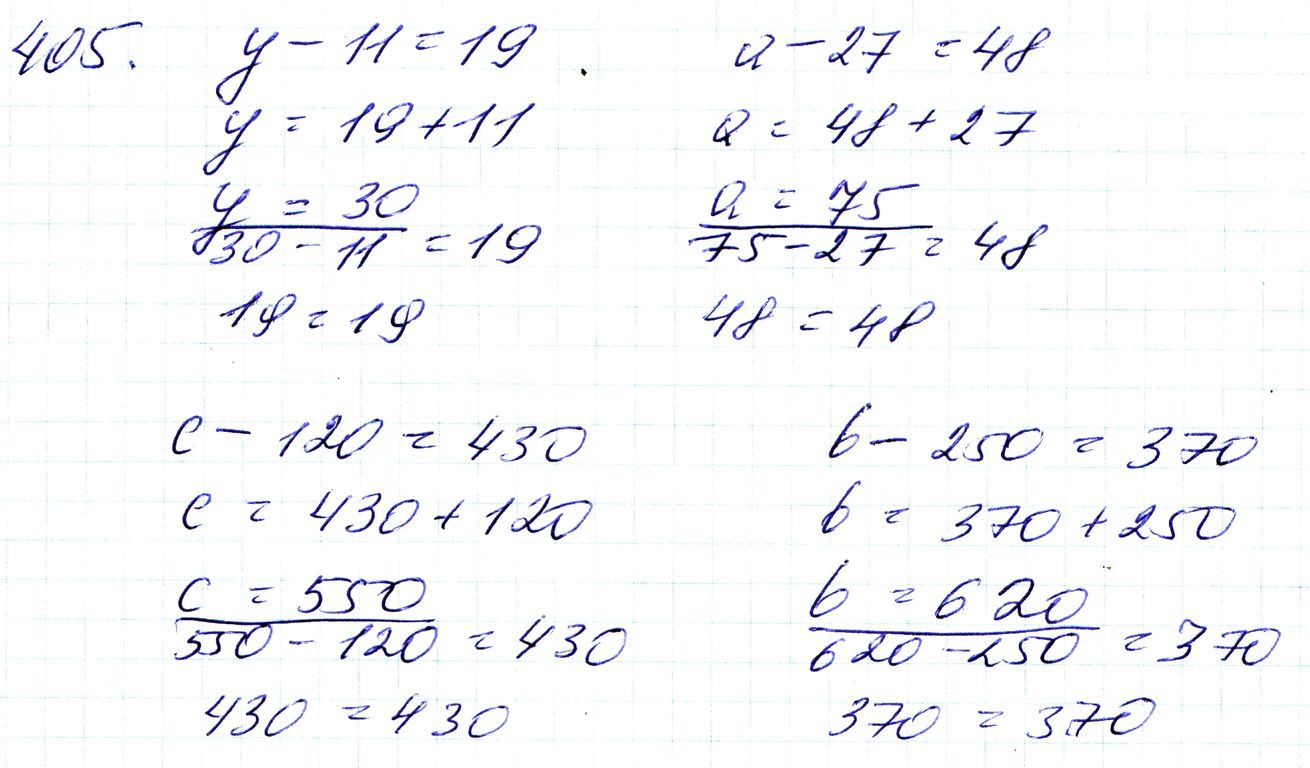 405. y - 11 = 19
y = 19 + 11
y = 30
30 - 11 = 19
19 = 19
a - 27 = 48
a = 48 + 27
a = 75
75 - 27 = 48
48 = 48
c - 120 = 430
c = 430 + 120
c = 550
550 - 120 = 430
430 = 430
b - 250 = 370
b = 370 + 250
b = 620
620 - 250 = 370
370 = 370